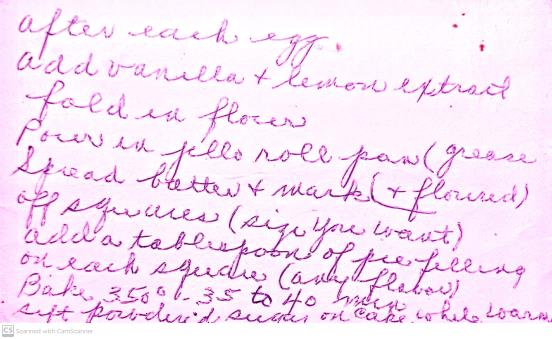 after each egg.
add vanilla + lemon extract
fold in flour
Pour in jello roll pan (grease
Spread batter + mark (+ floured)
off squares (size you want)
add a tablespoon of pie filling
on each square (any flavor)
Bake 350° - 35 to 40 min
sift powder'd sugar on cake while warm
CS Scanned with CamScanner